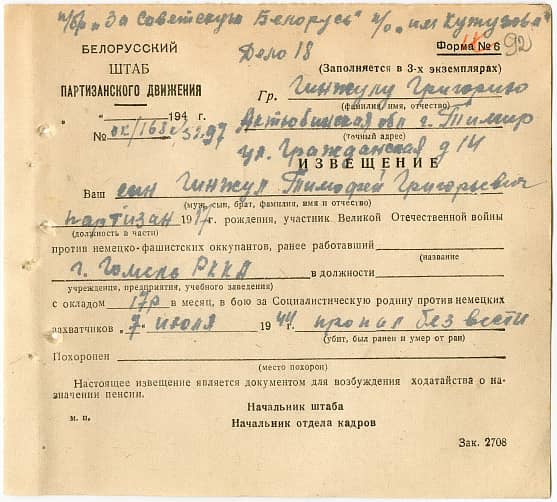 п/бр „За Советскую Белорусь" п/о „им Кутузова"
Дело 18
Форма № 6
92
БЕЛОРУССКИЙ
ШТАБ
ПАРТИЗАНСКОГО ДВИЖЕНИЯ
(Заполняется в 3-х экземплярах)
Гр. Гинжулу Григорию
(фамилия, имя, отчество)
„ “ 194 г.
Актюбинская обл г. Темир
(точный адрес)
№
ул. Гражданская д 14
ИЗВЕЩЕНИЕ
Ваш сын Гинжул Тимофей Григорьевич
(муж, сын, брат, фамилия, имя и отчество)
партизан 1917г. рождения, участник Великой Отечественной войны
(должность в части)
против немецко-фашистских оккупантов, ранее работавший
(название
г. Гомель РККА в должности
учреждения, предприятия, учебного заведения)
с окладом 17р в месяц, в бою за Социалистическую родину против немецких
захватчиков „7“ июля 1944г. пропал без вести
(убит, был ранен и умер от ран)
Похоронен
(место похорон)
Настоящее извещение является документом для возбуждения ходатайства о на-
значении пенсии.
Начальник штаба
м. п.
Начальник отдела кадров
Зак. 2708